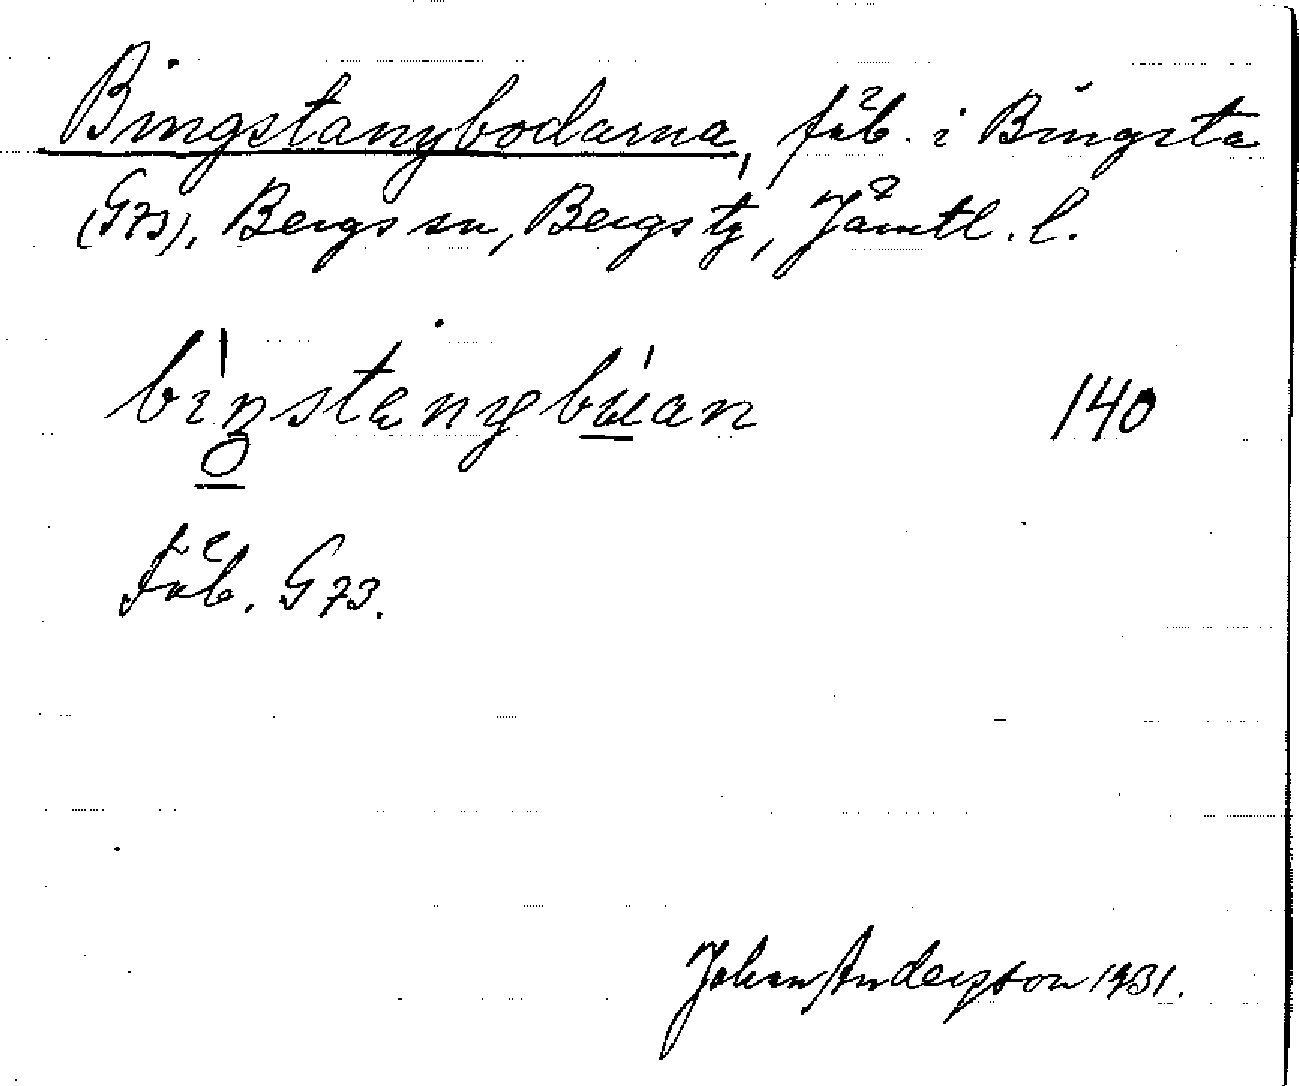 Bingstanybodarna, fäb. i Bingsta
(G73), Bergs sn, Bergs tg, Jämtl. l.
140
Fäb. G73.
Johan Anderson 1931.